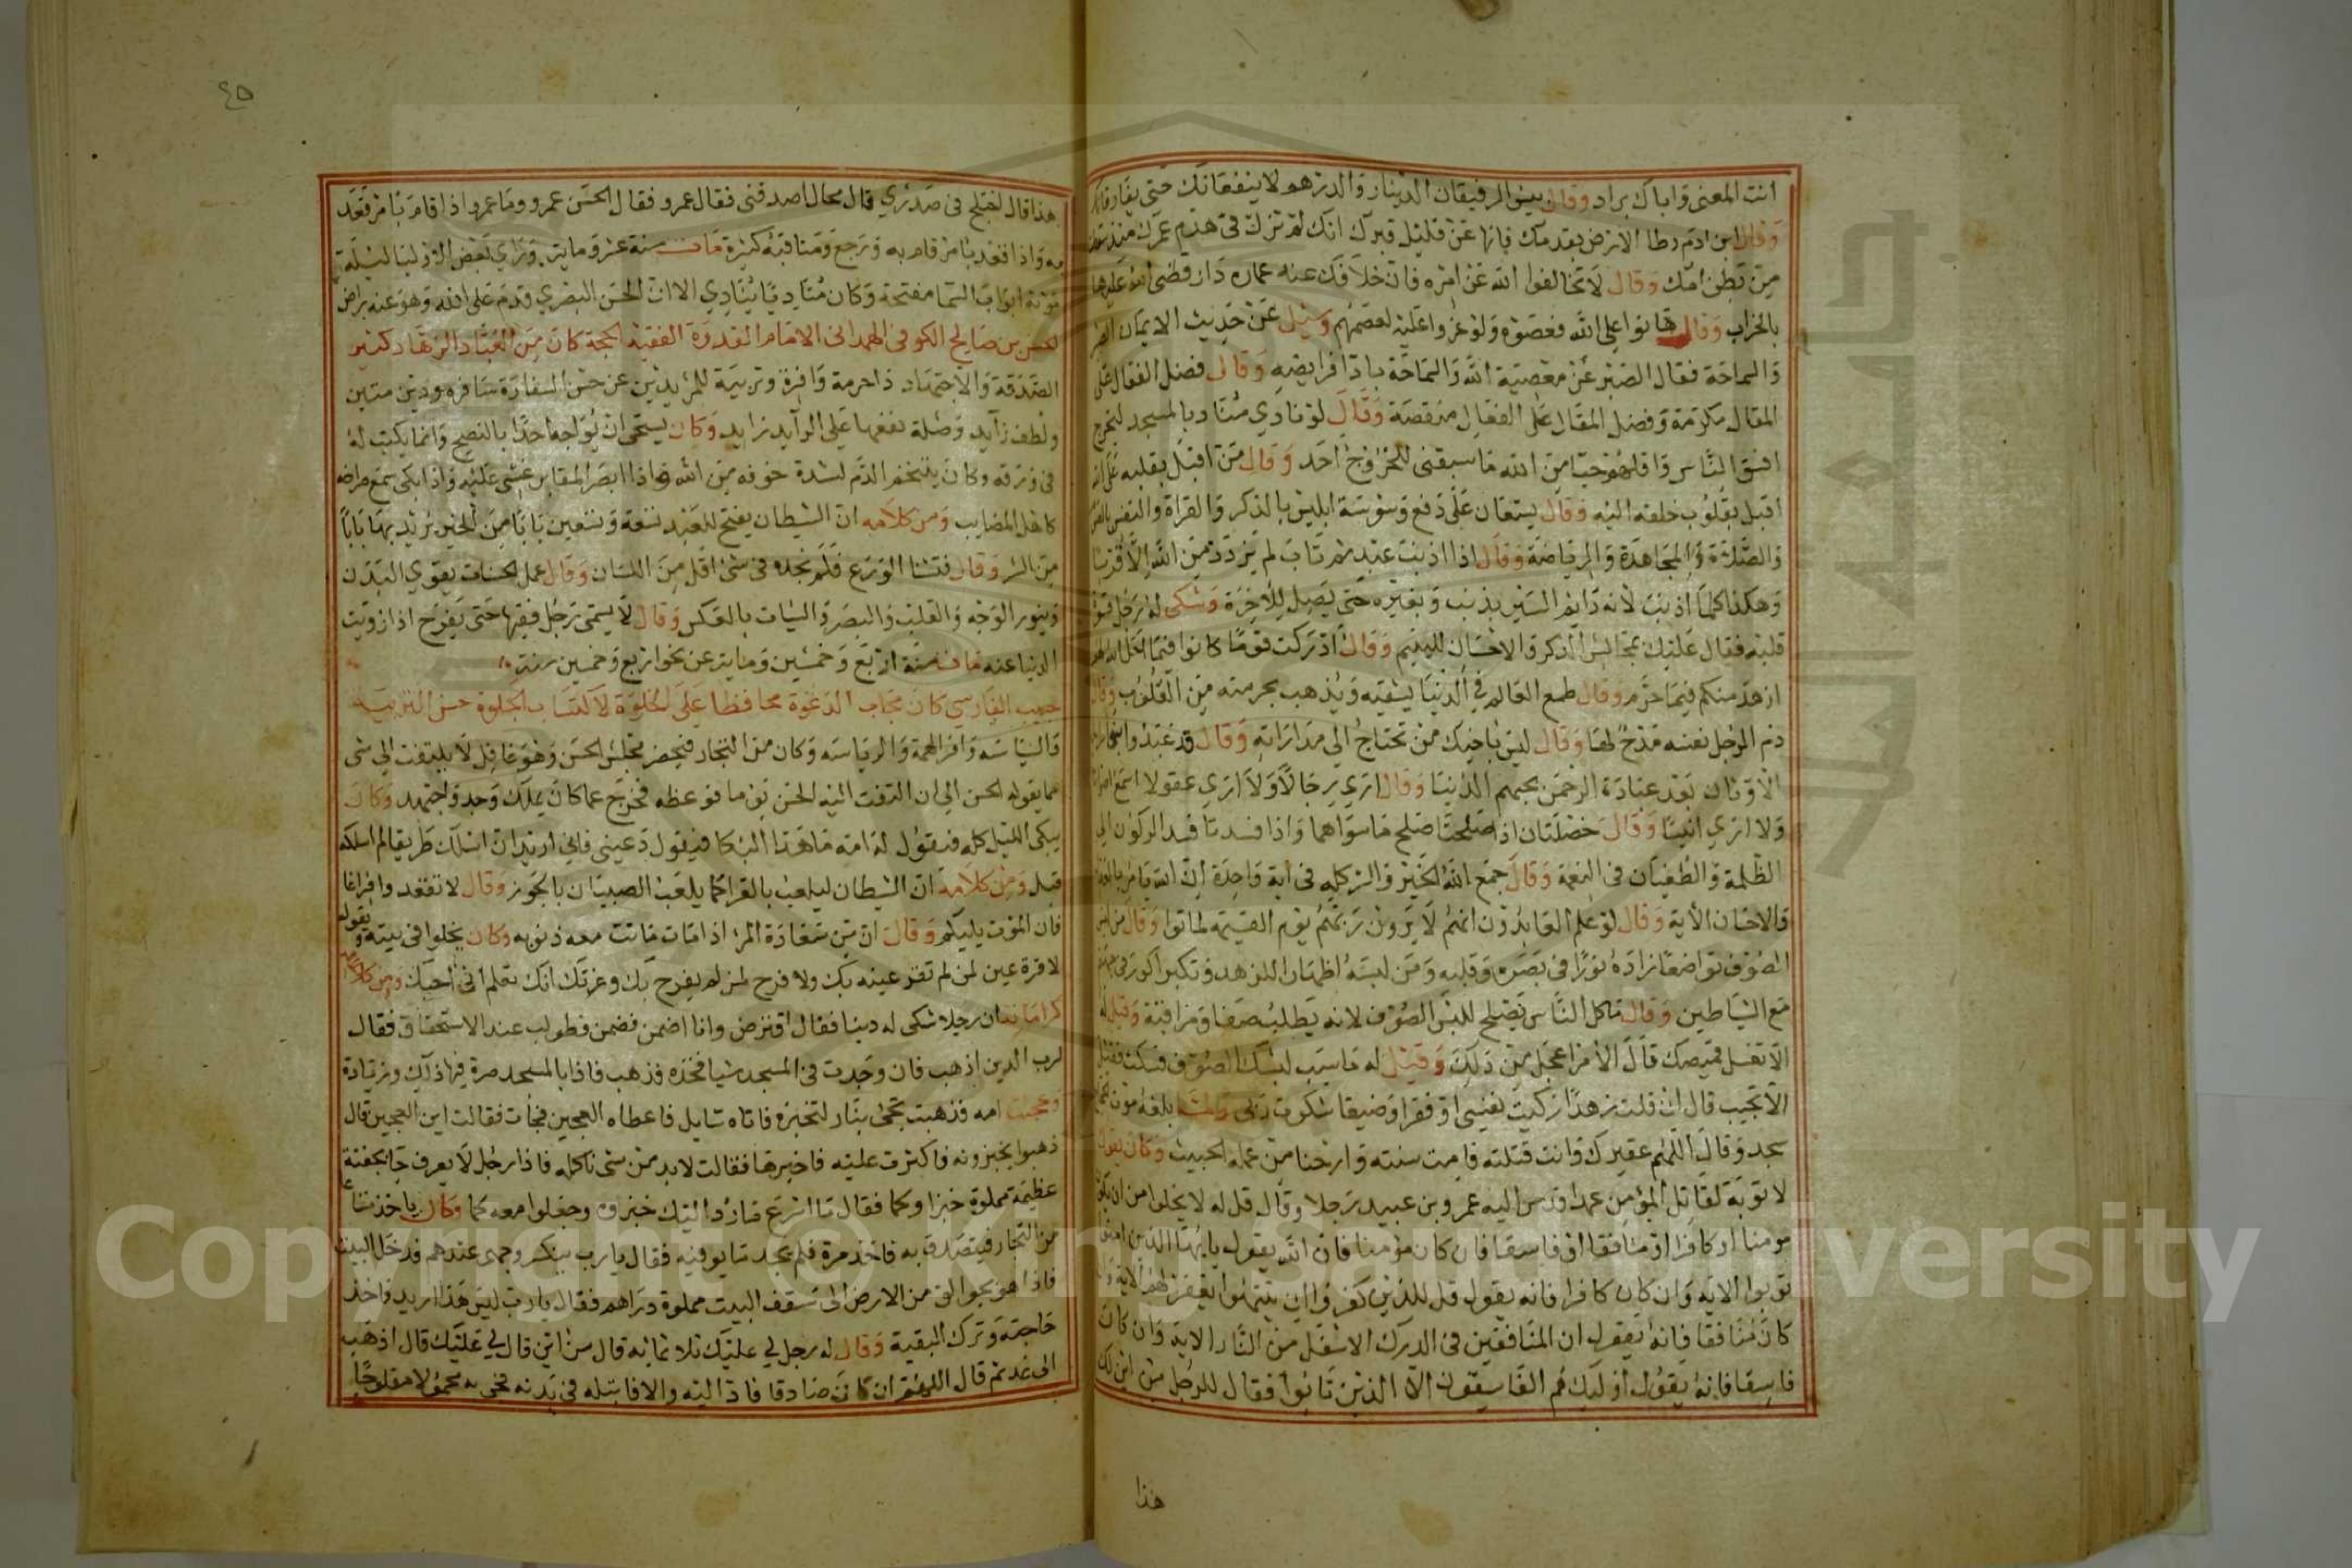 انت المعنى واياك يراد وقال بيس الرفيقان الدينار والدرهم لا ينفعانك حتى يفارقاك
وقال ابن ادم رطا الارض بقدمك فانها عن قليل قبرك انك لم تزل في هدم عمرك منذ سقطت
من بطن امك وقال لا تخالفوا الله عن امره فان خلافك عنه عماره دار قضى الله عليها
بالخراب وقال هانوا على الله فعصوه ولو عزوا عليه لعصمهم وسئل عن حديث الايمان الصبر
والسماحة فقال الصبر عن معصية الله والسماحة باداء فرايضه وقال فضل الفعال على
المقال مكرمة وفضل المقال على الفعال منقصة وقال لو نادي مناد بالمسجد ليخرج
افسق الناس واقلهم حبا من الله ما سبقنى للخروج احد وقال من اقبل بقلبه على الله
اقبل بقلوب خلقه اليه وقال يستعان على دفع وسوسة ابليس بالذكر والقراة والنفس بالصوم
والصلاة والمجاهدة والرياضة وقال اذا اذنب عبد ثم تاب لم يزدد من الله الا قربا
وهكذا كلما اذنب لانه دايم السير بذنب وبغيره حتى يصل للاخرة وشكى له رجل قسوة
قلبه فقال عليك بمجالس الذكر والاحسان لليتيم وقال ادركت قوما كانوا فيما احل الله لهم
ازهد منكم فيما حرم وقال طمع العالم في الدنيا يشقيه ويذهب بحرمته من القلوب وقال
ذم الرجل نفسه مدح لها وقال ليس باخيك من تحتاج الى مداراته وقال قد عبدوا
الاوثان بعد عبادة الرحمن بحبهم الدنيا وقال اري رجالا ولا اري عقولا اسمع اصواتا
ولا اري انيسا وقال خصلتان اذا صلحتا صلح ما سواهما واذا فسدتا فسد الركون الى
الظلمة والطغيان في النعمة وقال جمع الله الخير والشر كله في اية واحدة ان الله يامر بالعدل
والاحسان الاية وقال لو علم العابدون انهم لا يرون ربهم يوم القيمة لماتوا وقال من لبس
الصوف تواضعا زاده نورا في بصره وقلبه ومن لبسه اظهارا للزهد وتكبرا كور في جهنم
مع الشياطين وقال ما كل الناس يصلح للبس الصوف لانه يطلب صفا ومراقبة وقيل له
الا تغسل قميصك قال الامر اعجل من ذلك وقيل له ما سبب لبسك الصوف فسكت فقيل
الا تجيب قال ان قلت زهدا زكيت نفسي او فقرا وضيقا شكوت ربى ولما بلغه موت
سجد وقال اللهم عقيرك وانت قتلته فامت سنته وارحنا من عمله الخبيث وكان يقول
لا توبة لقاتل المؤمن عمدا فدس اليه عمرو بن عبيد رجلا وقال قل له لا يخلوا من ان يكون
مومنا او كافرا او منافقا او فاسقا فان كان مؤمنا فان الله يقول يا يها الذين امنوا
توبوا الاية وان كان كافرا فانه يقول قل للذين كفروا ان ينتهوا يغفر لهم الاية وان
كان منافقا فانه يقول ان المنافقين في الدرك الاسفل من النار الاية وان كان
فاسقا فانه يقول اوليك هم الفاسقون الا الذين تابوا فقال للرجل من اين لك
هذا
٤٥
هذا قال اختلج في صدري قال محال اصدقنى فقال عمرو فقال الحسن عمرو وما عمرو اذا قام بامر قعد
به واذا قعد بامر قام به ورجع ومناقبه كثيرة مات سنة عشر وماية وراي بعض الاوليا ليلة
موته ابواب السما مفتحة وكان مناديا ينادي الا ان الحسن البصري قدم على الله وهو عنه راض
الحسن بن صالح الكوفى الهمدانى الامام القدوة الفقيه الحجة كان من العباد الزهاد كثير
الصدقة والاجتهاد ذا حرمة وافرة وتربية للمريدين عن حسن السفارة سافره ودين متين
ولطف زايد وصلة نفعها على الرايد زايد وكان يستحى ان يواجه احدا بالنصح وانما يكتب له
في ورقه وكان يتنخم الدم لشدة خوفه من الله واذا ابصر المقابر غشى عليه واذا بكى سمع صراخه
كاهل المصايب ومن كلامه ان الشيطان يفتح للعبد تسعة وتسعين بابا من الخير يريد بها بابا
من الشر وقال فتشنا الورع فلم نجده في شئ اقل من اللسان وقال عمل الحسنات يقوي البدن
وينور الوجه والقلب والبصر والسيات بالعكس وقال لا يسمى رجل فقيها حتى يفرح اذا زويت
الدنيا عنه مات سنة اربع وخمسين وماية عن نحو اربع وخمسين سنة
حبيب الفارسي كان مجاب الدعوة محافظا على الخلوة لاكتساب الجلوة حسن التربية
والسياسه وافر الهمة والرياسه وكان من التجار فيحضر مجلس الحسن وهو غافل لا يلتفت الى شى
مما يقوله الحسن الى ان التفت اليه الحسن يوما فوعظه فخرج عما كان يملك وجد واجتهد وكان
يبكى الليل كله فيقول له امه ما هذا البكا فيقول دعيني فاني اريد ان اسلك طريقا لم اسلكه
قبل ومن كلامه ان الشيطان ليلعب بالقرا كما يلعب الصبيان بالجوز وقال لا تقعد وافراغا
فان الموت يليكم وقال ان من سعادة المرء اذا مات ماتت معه ذنوبه وكان يخلوا في بيته ويقول
لا قرة عين لمن لم تقر عينه بك ولا فرح لمن لم يفرح بك وعزتك انك تعلم انى احبك ومن
كراماته ان رجلا شكى له دينا فقال اقترض وانا اضمن فضمن فطولب عند الاستحقاق فقال
لرب الدين اذهب فان وجدت في المسجد شيا فخذه فذهب فاذا بالمسجد صرة فيها ذلك وزيادة
وعجنت امه فذهبت تجئ بنار لتخبزه فاتاه سايل فاعطاه العجين فجات فقالت اين العجين قال
ذهبوا يخبزونه فاكثرت عليه فاخبرها فقالت لابد من شى ناكله فاذا رجل لا يعرف جا بجفنة
عظيمة مملوة خبزا ولحما فقال ما اسرع ما ردوا اليك خبزوه وجعلوا معه لحما وكان ياخذ متاعا
من التجار فيتصدق به فاخذ مرة فلم يجد ما يوفيه فقال يا رب ينكسر وجهى عندهم فدخل البيت
فاذا هو بجوالق من الارض الى سقف البيت مملوة دراهم فقال يا رب ليس هذا اريد فاخذ
حاجته وترك البقية وقال له رجل لي عليك ثلاثمائه قال من اين قال لي عليك قال اذهب
الى غد ثم قال اللهم ان كان صادقا فاد اليه والا فابتله في يدنه فجى به محمولا مفلوجا
Copyright © King Saud University